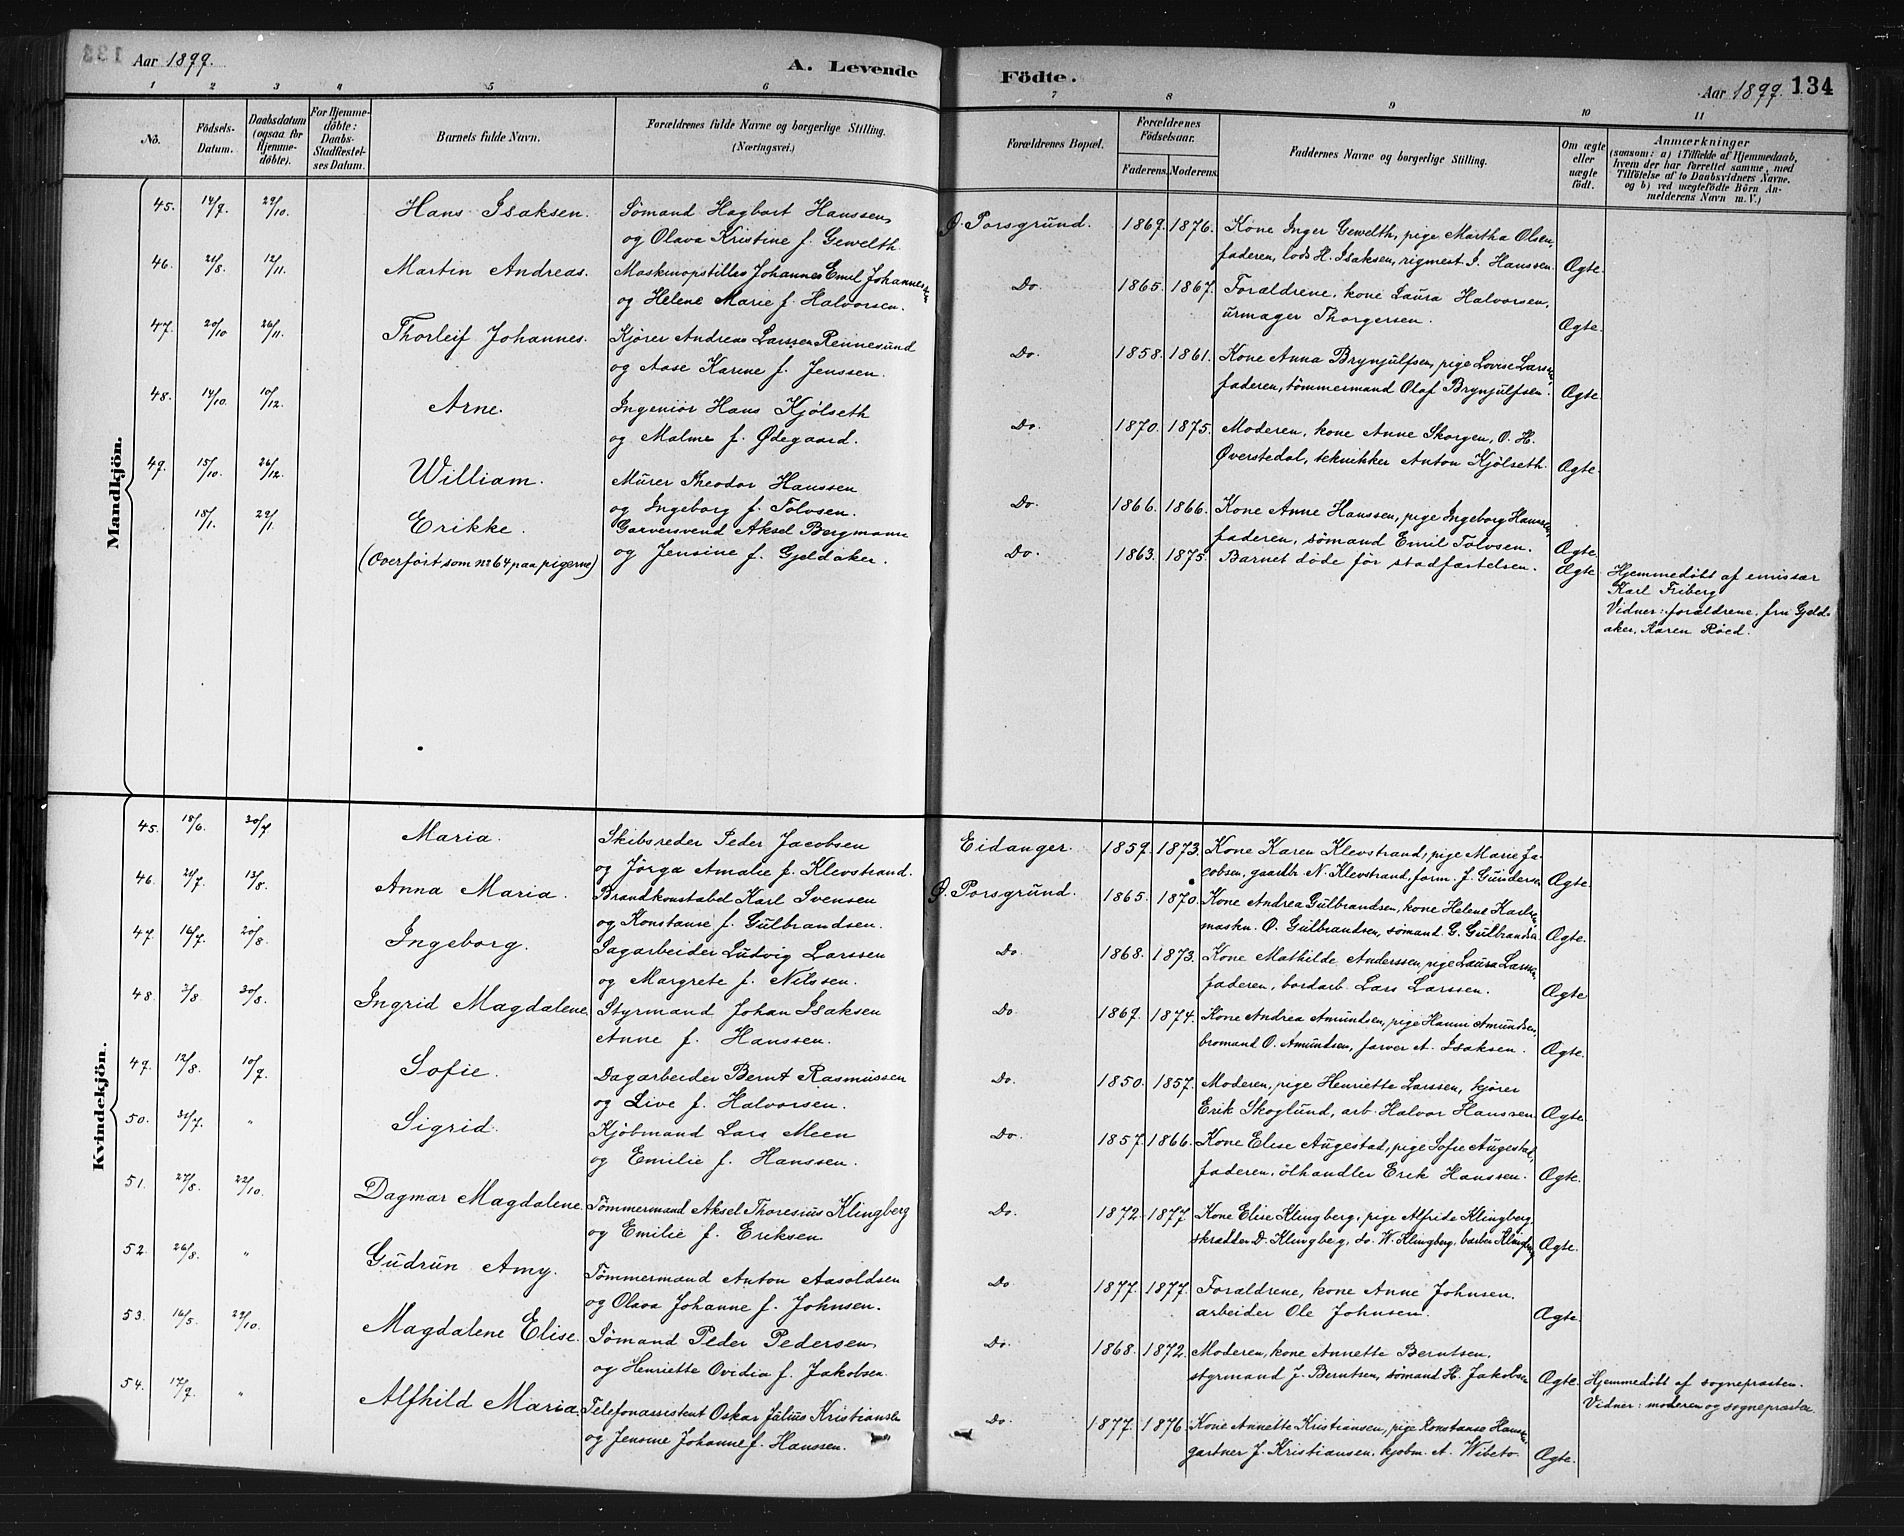 133
Aar 1899.
A. Levende Födte.
Aar 1899. 134
1 2 3 4 5 6 7 8 9 10 11
No.
Födsels-Datum.
Daabsdatum (ogsaa for Hjemme-döbte).
For Hjemme-döbte: Daabs-Stadfæstel-ses Datum.
Barnets fulde Navn.
Forældrenes fulde Navne og borgerlige Stilling.
(Næringsvei.)
Forældrenes Bopæl.
Forældrenes Födselsaar.
Faderens. Moderens.
Faddernes Navne og borgerlige Stilling.
Om ægte eller uægte födt.
Anmærkninger
(saasom: a) i Tilfælde af Hjemmedaab, hvem der har forrettet samme, med Tilföielse af to Daabsvidners Navne, og b) ved uægtefödte Börn An-melderens Navn m. V.)
Mandkjön.
45. 14/9. 29/10. Hans Isaksen. Sømand Hagbart Hanssen Ø. Porsgrund. 1869. 1876. Kone Inger Gewelth, pige Martha Olsen,
og Olava Kristine f. Gewelth. faderen, lods H. Isaksen, rigmest. I. Hanssen. Ægte.
46. 21/8. 12/11. Martin Andreas. Maskinopstiller Johannes Emil Johannessen Do. 1865. 1867. Forældrene, kone Laura Halvorsen,
og Helene Marie f. Halvorsen. urmager Thorgersen. Ægte.
47. 20/10 26/11. Thorleif Johannes. Kjører Andreas Larssen Rennesund Do. 1858. 1861. Kone Anna Brynjulfsen, pige Lovise Larssen,
og Aase Karine f. Jenssen. faderen, tømmermand Olaf Brynjulfsen. Ægte
48. 14/10. 10/12. Arne. Ingeniør Hans Kjølseth Do. 1870. 1875. Moderen, kone Anne Skorgen, O. H.
og Malme f. Ødegaard. Øverstedal, tekniker Anton Kjølseth. Ægte.
49. 15/10. 26/12. William. Murer Theodor Hanssen Do. 1866. 1866. Kone Anne Hanssen, pige Ingeborg Hanssen,
og Ingeborg f. Tolvsen. faderen, sømand Emil Tolvsen. Ægte
18/1. 29/1. Erikke. Garversvend Aksel Bergmann Do. 1863. 1875. Barnet døde før stadfæstelsen. Ægte
(Overført som no 64 paa pigerne) og Jensine f. Gjeldaker. Hjemmedøbt af emissær
Karl Friberg
Vidner: forældrene, fru Gjeld-
aker, Karen Røed.
Kvindekjön.
45. 18/6. 30/7 Maria. Skibsreder Peder Jacobsen Eidanger. 1859. 1873. Kone Karen Klevstrand, pige Marie Ja-
og Jørga Amalie f. Klevstrand. cobsen, gaardbr. N. Klevstrand, form. J. Gundersen Ægte.
46. 21/7. 13/8. Anna Maria. Brandkonstabel Karl Svensen Ø. Porsgrund. 1865. 1870. Kone Andrea Gulbrandsen, kone Helene Karlsen
og Konstanse f. Gulbrandsen. maskn. O. Gulbrandsen, sømand G. Gulbrandsen Ægte.
47. 16/7. 20/8. Ingeborg. Sagarbeider Ludvig Larssen Do. 1868. 1873. Kone Mathilde Anderssen, pige Laura Larssen
og Margrete f. Nilssen. faderen, bordarb. Lars Larssen. Ægte
48. 3/8. 20/8. Ingrid Magdalene. Styrmand Johan Isaksen Do. 1869. 1874. Kone Andrea Amundsen, pige Hanni Amundsen,
Anne f. Hanssen. bromand O. Amundsen, farver A. Isaksen. Ægte.
49. 12/8. 10/9. Sofie. Dagarbeider Bernt Rasmussen Do. 1850. 1857. Moderen, pige Henriette Larssen, kjører
og Live f. Halvorsen. Erik Skoglund, arb. Halvor Hanssen Ægte.
50. 31/7. " Sigrid. Kjøbmand Lars Meen Do. 1857. 1866. Kone Elise Augestad, pige Sofie Augestad,
og Emilie f. Hanssen. faderen, ølhandler Erik Hanssen. Ægte.
51. 27/8. 22/10. Dagmar Magdalene. Tømmermand Aksel Thoresius Klingberg Do. 1872. 1877 Kone Elise Klingberg, pige Alfride Klingberg.
og Emilie f. Eriksen skrædder D. Klingberg, do. W. Klingberg, barber Klingberg Ægte.
52. 26/8. " Gudrun Amy. Tømmermand Anton Aasoldsen Do. 1877. 1877. Forældrene, kone Anne Johnsen.
og Olava Johanne f. Johnsen. arbeider Ole Johnsen. Ægte.
53. 16/5. 29/10. Magdalene Elise. Sømand Peder Pedersen Do. 1868. 1872. Moderen, kone Annette Berntsen.
og Henriette Ovidia f. Jakobsen. styrmand J. Berntsen, sømand H. Jakobsen Ægte. Hjemmedøbt af sognepræsten.
Vidner: moderen og sognepræsten
54. 17/9. " Alfhild Maria. Telefonassistent Oskar Julius Kristiansen Do. 1877. 1876. Kone Annette Kristiansen, pige Konstanse Hanssen
og Jensine Johanne f. Hanssen. gartner J. Kristiansen, kjøbm. A. Wibeto. Ægte.